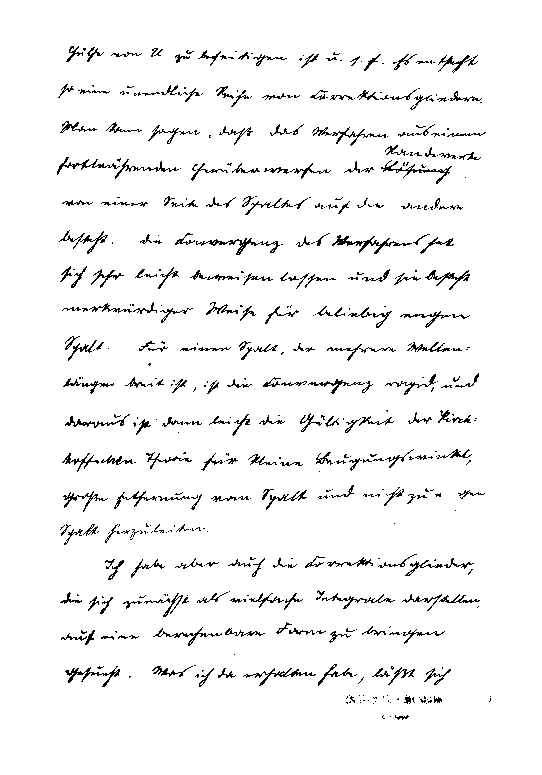 Hülfe von U zu beseitigen ist u. s. f. Es entsteht
so eine unendliche Reihe von Correktionsgliedern.
Man kann sagen, daß das Verfahren aus einem
Randwerte
fortwährenden Herüberwerfen der Lösung
von einer Seite des Spaltes auf die andere
besteht. Die Convergenz des Verfahrens hat
sich sehr leicht beweisen lassen und sie besteht
merkwürdiger Weise für beliebig engen
Spalt. Für einen Spalt, der mehrere Wellen-
längen breit ist, ist die Convergenz rapid, und
daraus ist dann leicht die Gültigkeit der Kirch-
hoffschen Theorie für kleine Beugungswinkel,
große Entfernung vom Spalt und nicht zu engen
Spalt herzuleiten.
Ich habe aber auch die Correktionsglieder,
die sich zunächst als vielfache Integrale darstellen,
auf eine berechenbare Form zu bringen
gesucht. Was ich da erhalten habe, läßt sich